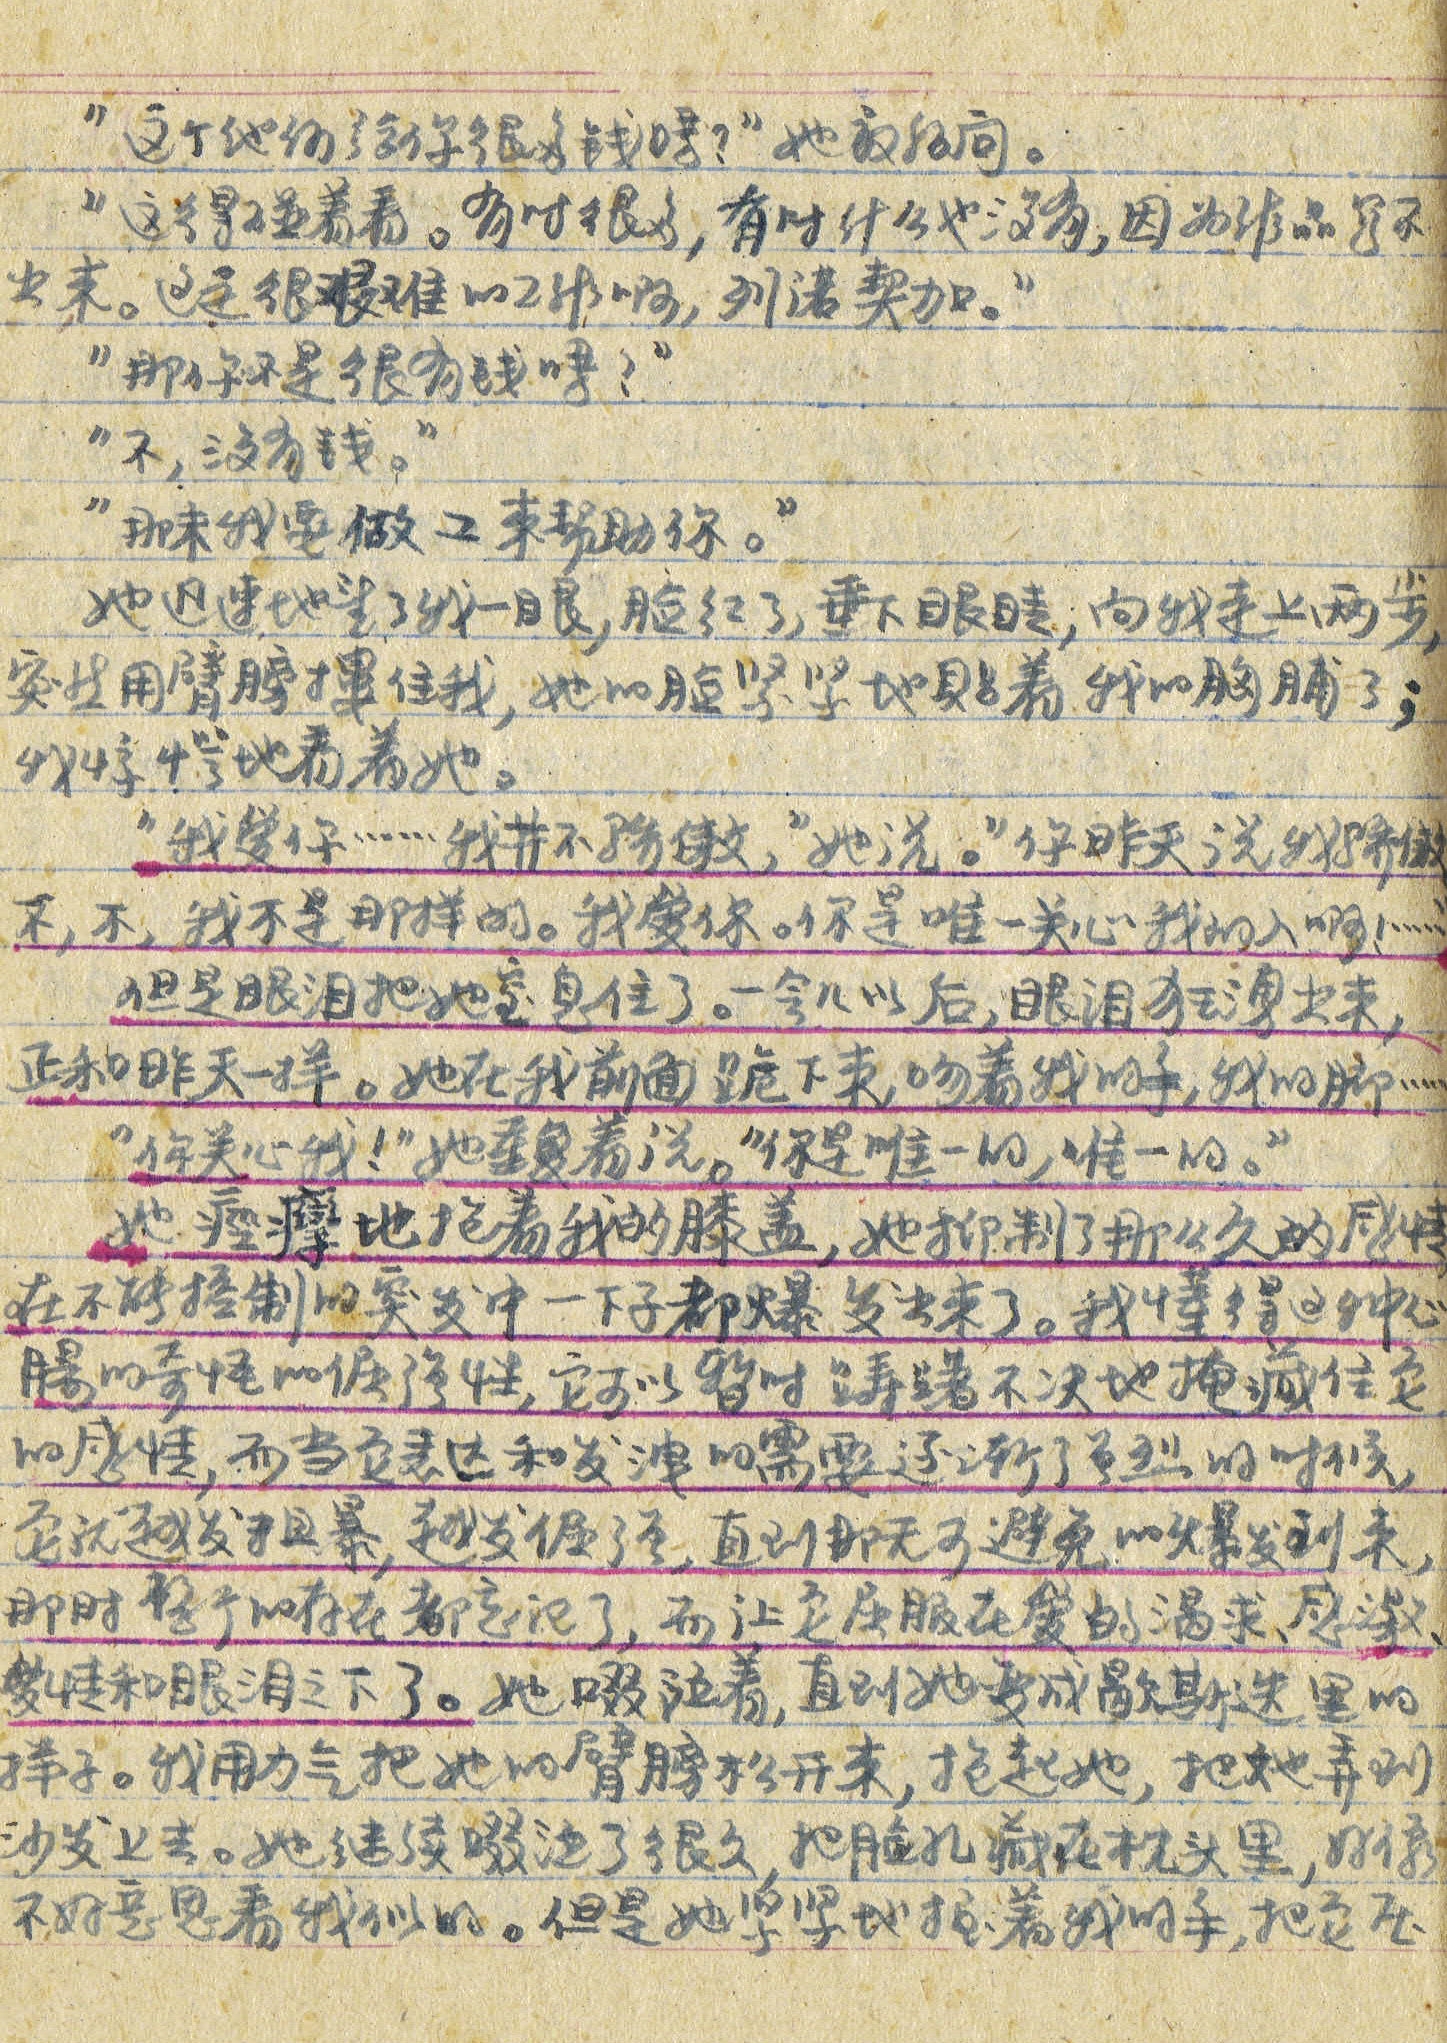 “这个他们给你很多钱吗？”她最后问。
“这得碰着看。有时很多，有时什么也没有，因为作品写不
出来。这是很艰难的工作啊，列诺契加。”
“那你不是很有钱吗？”
“不，没有钱。”
“那末我要做工来帮助你。”
她迅速地望了我一眼，脸红了，垂下眼睛，向我走上两步，
突然用臂膀搂住我，她的脸紧紧地贴着我的胸脯了；
我惊愕地看着她。
“我爱你……我并不骄傲，”她说。“你昨天说我骄傲
不，不，我不是那样的。我爱你。你是唯一关心我的人啊！……
但是眼泪把她窒息住了。一会儿以后，眼泪狂涌出来，
正和昨天一样。她在我前面跪下来，吻着我的手，我的脚……
“你关心我！”她重复着说。“你是唯一的，唯一的。”
她痉挛地抱着我的膝盖，她抑制了那么久的感情
在不能控制的突发中一下子都爆发出来了。我懂得这种心
肠的奇怪的倔强性，它可以暂时踌躇不决地掩藏住它
的感情，而当它表达和发泄的需要逐渐了强烈的时候，
它就越发粗暴，越发倔强，直到那无可避免的爆发到来，
那时整个的存在都忘记了，而让它屈服在爱的渴求、感激、
爱情和眼泪之下了。她啜泣着，直到她变成歇斯迭里的
样子。我用力气把她的臂膀松开来，抱起她，把她弄到
沙发上去。她继续啜泣了很久，把脸孔藏在枕头里，好像
不好意思看我似的。但是她紧紧地拉着我的手，把它压